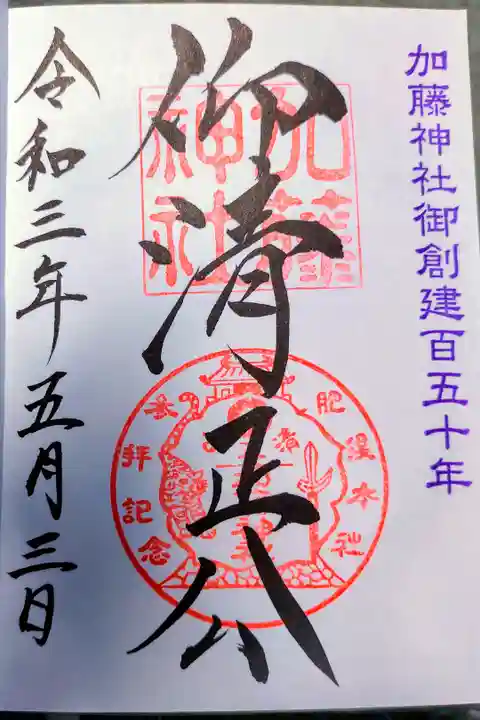 加藤神社御創建百五十年
仰清正公
加藤神社
肥後本社
参拝記念
令和三年五月三日